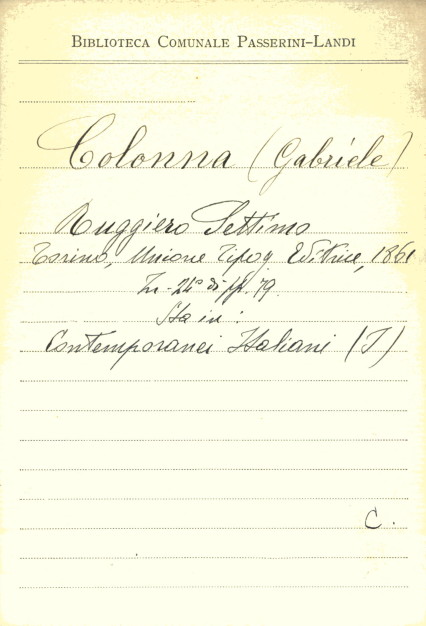 BIBLIOTECA COMUNALE PASSERINI-LANDI
Colonna (Gabriele)
Ruggiero Settimo
Torino, Unione Tipog Editrice, 1861
In-24º di pp. 79
Sta in:
Contemporanei Italiani (I)
C.